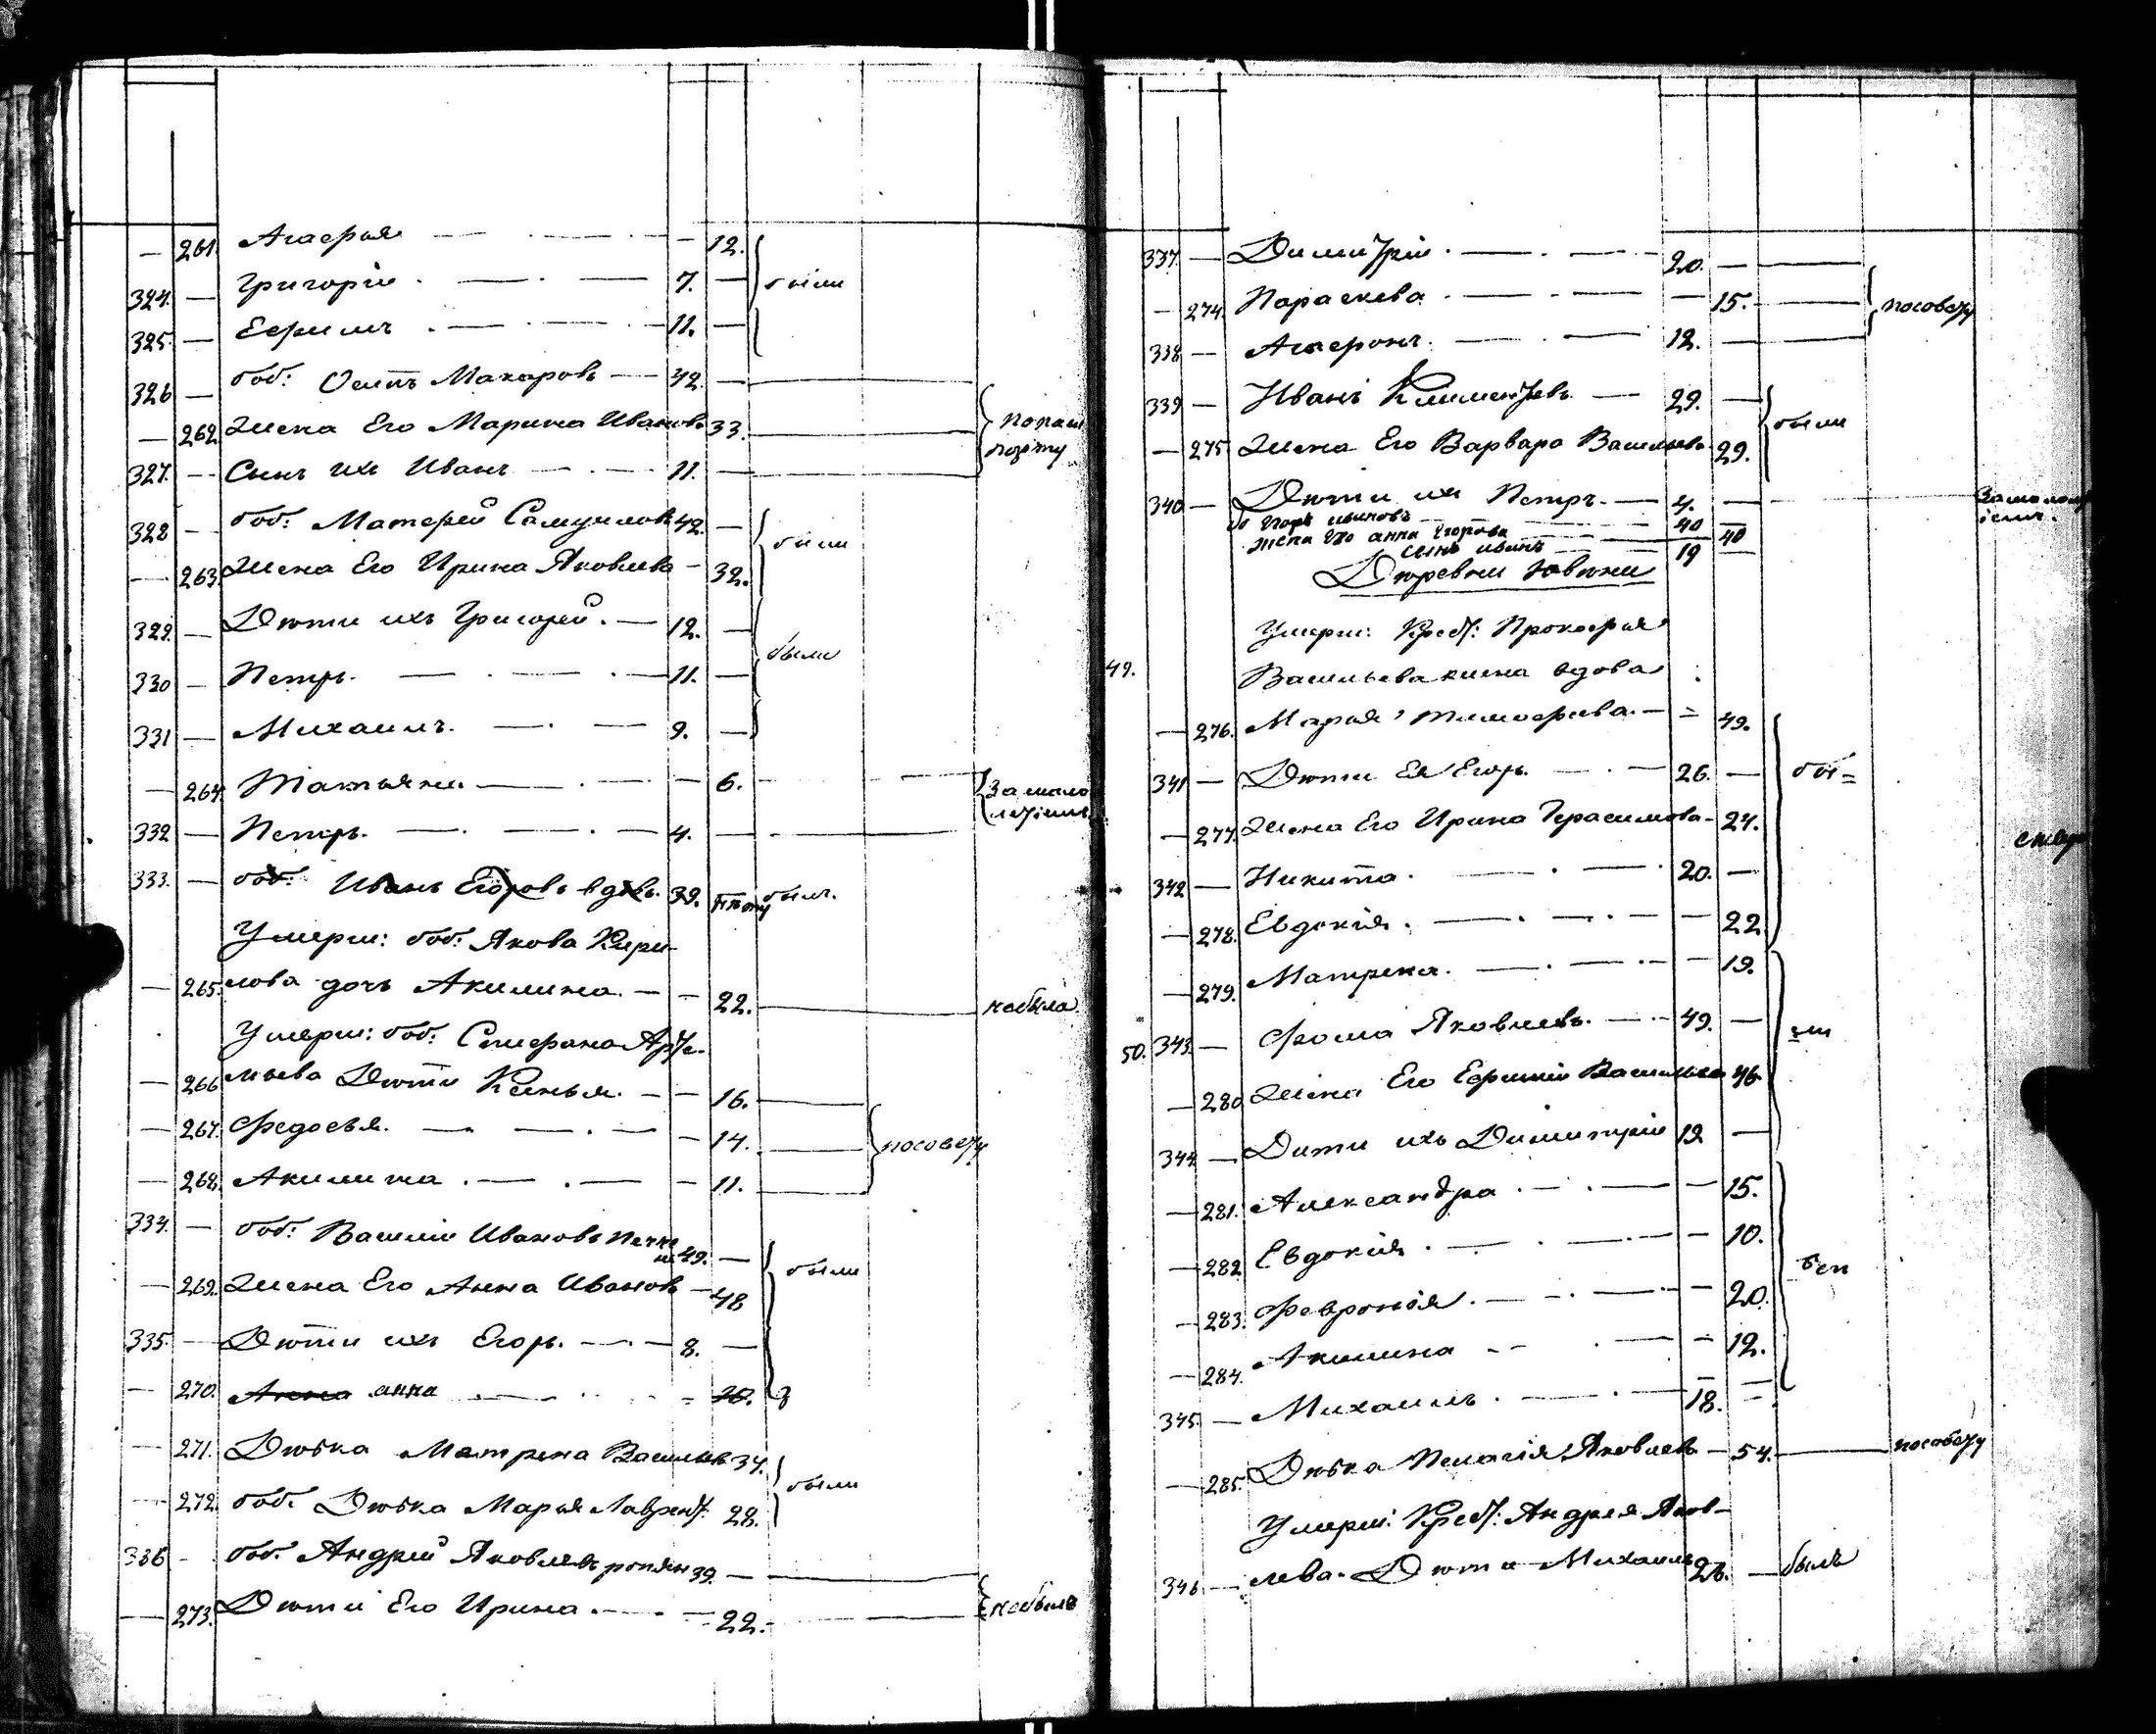 — 261. Агафья — — 12.
324. — Григорiй — 7. — были
325. — Ефимъ — 11. —
326 — боб: Осипъ Макаровъ — 42. —
— 262 Жена Его Марина Иванова 33.
327. — Сынъ ихъ Иванъ — 11. —
328 — боб: Матфей Самуиловъ 42. — были
— 263 Жена Его Ирина Яковлева — 32.
329. — Дѣти ихъ Григорей. — 12. —
были
330 — Петръ. — 11. —
331 — Михаилъ. — 9. —
— 264. Татьяна — — 6. За мало
лѣтiемъ
332 — Петръ. — 4. —
333. — боб: Иванъ Егоровъ вдовъ. 39. былъ.
Умерш: боб: Якова Кири-
— 265. лова дочь Акилина. — — 22. небыла
Умерш: боб: Стефана Арте-
— 266 мьева Дѣти Ксенья. — — 16.
— 267. Федосья. — — 14. посовету
— 268. Акилина. — — 11.
334. — боб: Василiй Ивановъ 49. — были
— 269. Жена Его Анна Иванов — 48
335. — Дѣти ихъ Егоръ. — 8. —
— 270. Анна анна — 10.
— 271. Дѣвка Матрена Васильев 34.
были
— 272. боб. Дѣвка Марья Лаврент. 28.
336 — боб. Андрей Яковлевъ 39. —
— 273. Дѣти Его Ирина. — — 22. небыло
337. — Димитрiй. — 20. —
— 274. Параскева. — — 15. посовету
338 — Агафонъ. — 12. —
339 — Иванъ Климентьевъ — 29. — были
— 275 Жена Его Варвара Васильева 29.
340 — Дѣти ихъ Петръ. — 4. — За мало
об Егоръ ивановъ — 40 —
жена Его анна Егорова — 40
сынъ иванъ — 19 —
Умерш: Крест: Прокофья
49. Васильева жена вдова
— 276. Марья тимофеева. — 49.
341 — Дѣти Ея Егоръ. — 26. — бы=
— 277. Жена Его Ирина Герасимова — 24.
342 — Никита. — 20. —
— 278. Евдокiя. — — 22
— 279. Матрена. — — 19.
50. 343. — Фома Яковлевъ. — 49. — ли
— 280 Жена Его Ефимiя Васильева 46.
344. — Дѣти ихъ Димитрiй 19 —
— 281. Александра. — — 15.
— 282 Евдокiя. — — 10.
— 283. Феврония. — — 20.
— 284. Акилина — — 12.
345. — Михаилъ. — 18. —
— 285. Дѣвка Пелагiя Яковлева — 54. посовету
Умерш: Крест: Андрея Яков-
346 — лева. Дѣти Михаилъ 26. — былъ